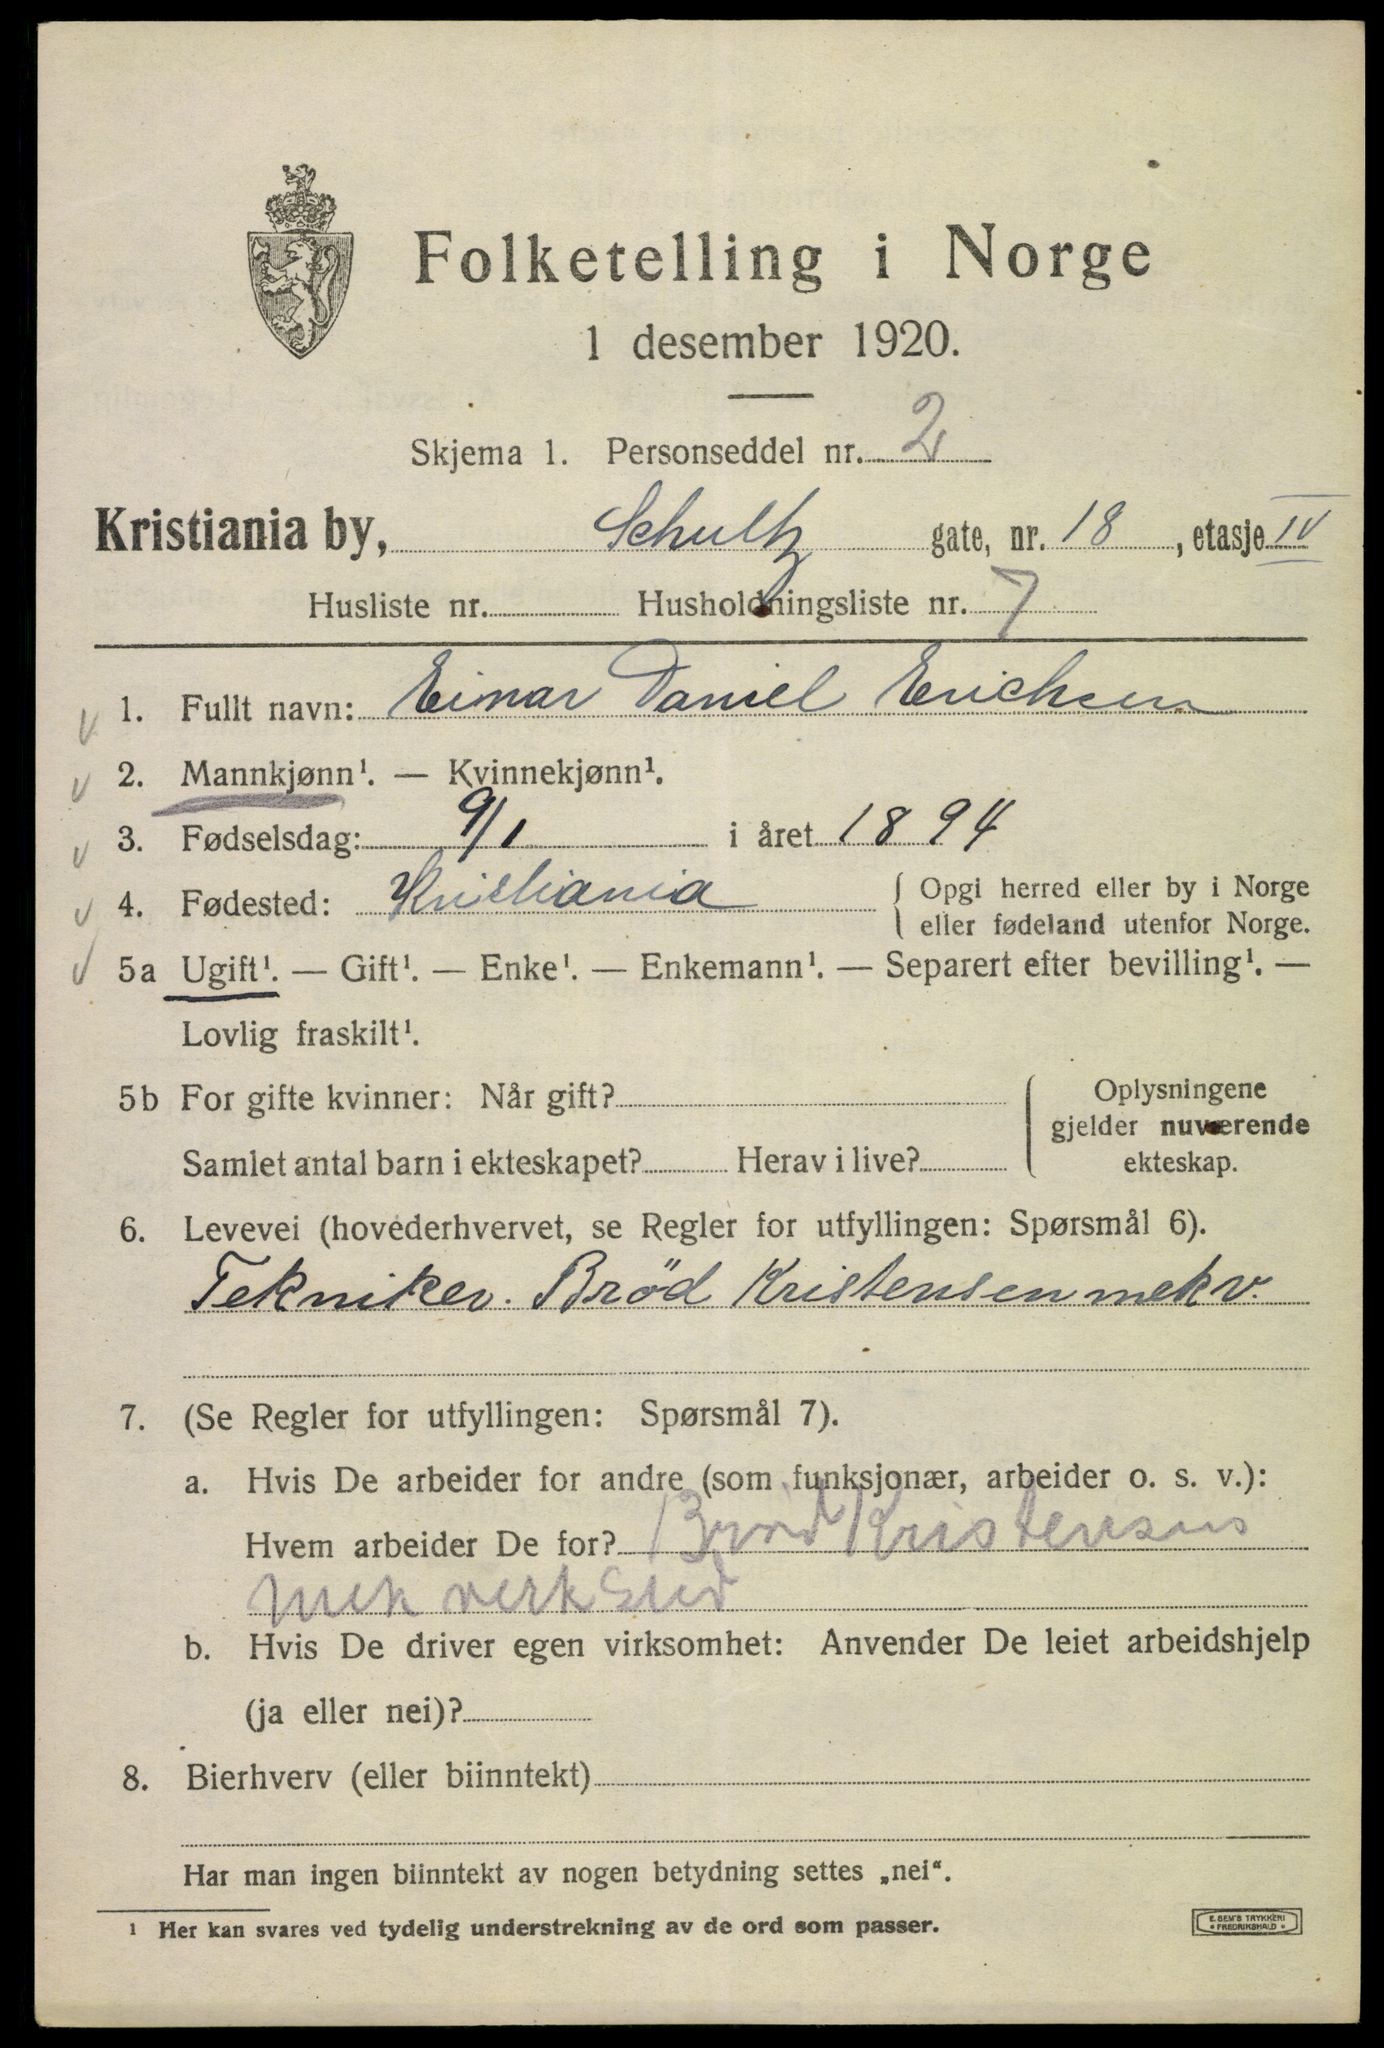 Folketelling i Norge
1 desember 1920.
Skjema 1. Personseddel nr. 2
Kristiania by, Schultz gate, nr. 18, etasje IV
Husliste nr. Husholdningsliste nr. 7
v 1. Fullt navn: Einar Daniel Erichsen
v 2. Mannkjønn¹. — Kvinnekjønn¹.
v 3. Fødselsdag: 9/1 i året 1894
v 4. Fødested: Kristiania { Opgi herred eller by i Norge
eller fødeland utenfor Norge.
v 5a Ugift¹. — Gift¹. — Enke¹. — Enkemann¹. — Separert efter bevilling¹. —
Lovlig fraskilt¹.
5b For gifte kvinner: Når gift?
Samlet antal barn i ekteskapet? Herav i live?
Oplysningene
gjelder nuværende
ekteskap.
6. Levevei (hovederhvervet, se Regler for utfyllingen: Spørsmål 6).
Tekniker. Bröd Kristensen mek v.
7. (Se Regler for utfyllingen: Spørsmål 7).
a. Hvis De arbeider for andre (som funksjonær, arbeider o. s. v.):
Hvem arbeider De for? Brød Kristensens
mek verksted
b. Hvis De driver egen virksomhet: Anvender De leiet arbeidshjelp
(ja eller nei)?
8. Bierhverv (eller biinntekt)
Har man ingen biinntekt av nogen betydning settes „nei“.
¹ Her kan svares ved tydelig understrekning av de ord som passer.
E. SEM'S TRYKKERI
• FREDRIKSHALD •